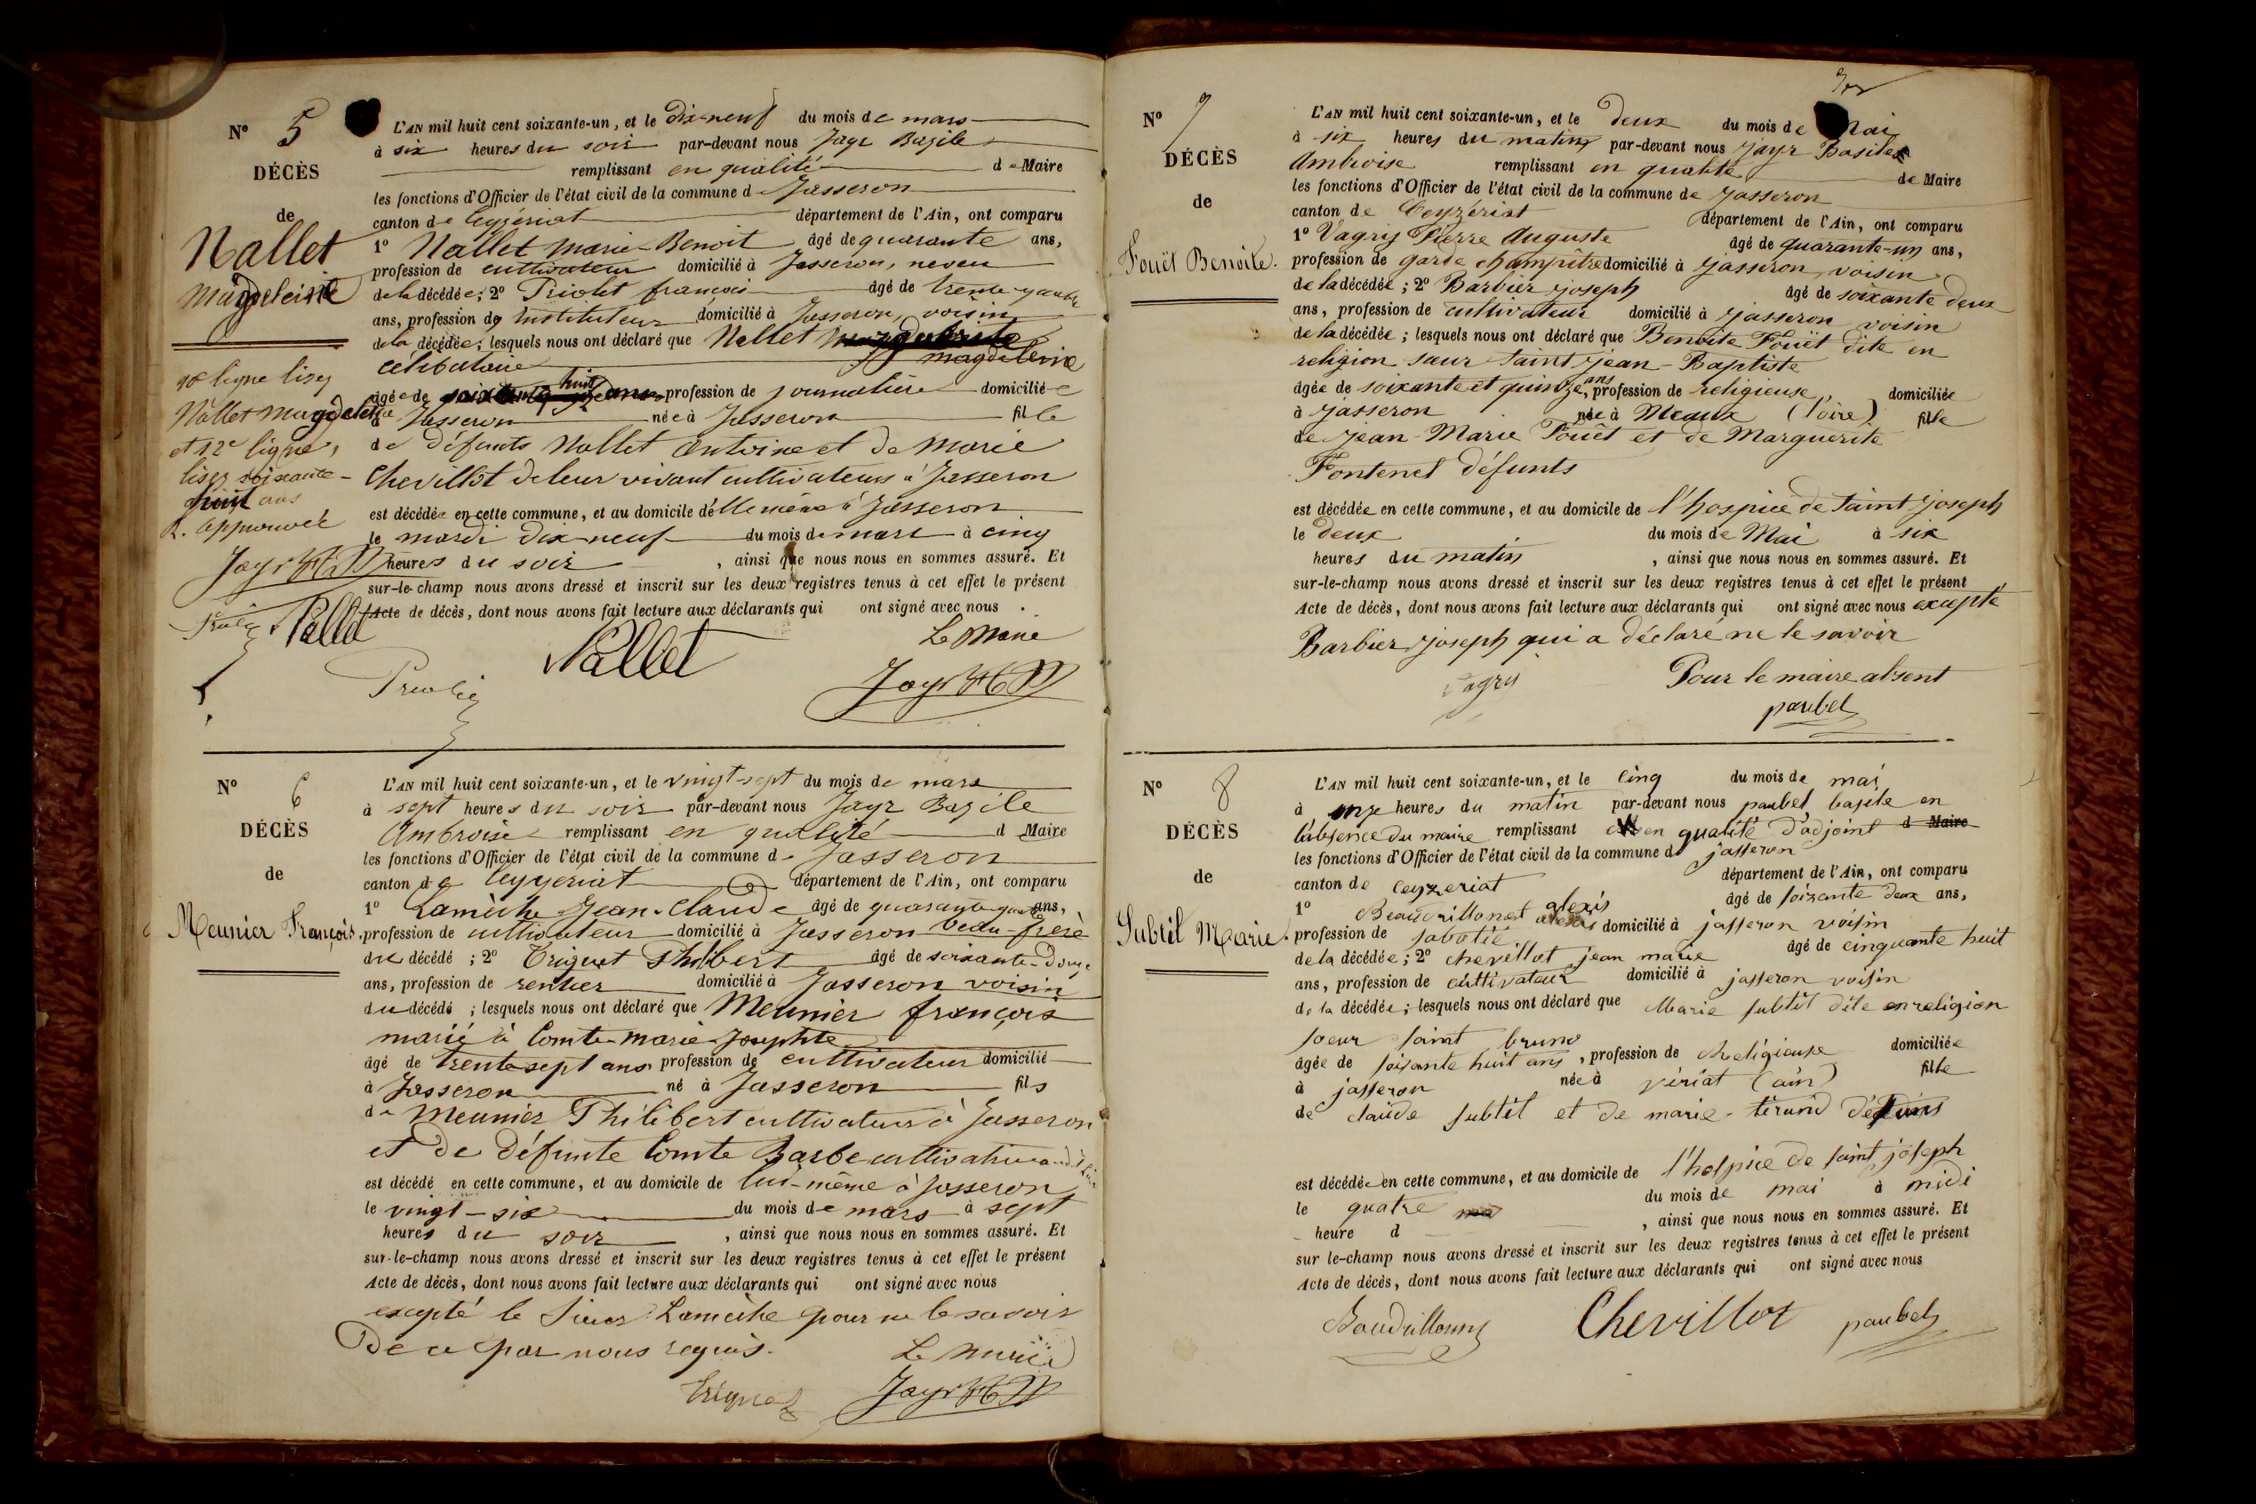 N° 5
DÉCÈS
de
Nallet
Magdeleine
10e ligne lisez
Nallet Magdeleine
et 12e ligne,
lisez soixante-
huit ans
R. Approuvée
Jayr
Nallet
L'AN mil huit cent soixante-un, et le dix-neuf du mois de mars
à six heures du soir par-devant nous Jayr Bazile
remplissant en qualité de Maire
les fonctions d'Officier de l'état civil de la commune de Jasseron
canton de Ceyzériat département de l'Ain, ont comparu
1° Nallet Marie-Benoit âgé de quarante ans,
profession de cultivateur domicilié à Jasseron, neveu
de la décédée; 2° Priolet françois âgé de trente-quatre
ans, profession de Instituteur domicilié à Jasseron, voisin
de la décédée; lesquels nous ont déclaré que Nallet
magdeleine
célibataire
âgée de huit profession de journalière domiciliée
à Jasseron née à Jasseron fille
de défunts Nallet Antoine et de Marie
Chevillot de leur vivant cultivateurs à Jasseron
est décédée en cette commune, et au domicile d'elle même à Jasseron
le mardi dix neuf du mois de mars à cinq
heures du soir, ainsi que nous nous en sommes assuré. Et
sur-le-champ nous avons dressé et inscrit sur les deux registres tenus à cet effet le présent
Acte de décès, dont nous avons fait lecture aux déclarants qui ont signé avec nous.
Le Maire
Nallet
Jayr
N° 6
DÉCÈS
de
Meunier François.
L'AN mil huit cent soixante-un, et le vingt-sept du mois de mars
à sept heures du soir par-devant nous Jayr Bazile
Ambroise remplissant en qualité d Maire
les fonctions d'Officier de l'état civil de la commune de Jasseron
canton de Ceyzeriat département de l'Ain, ont comparu
1° Lamèche Jean-Claude âgé de quarante-quatre ans,
profession de cultivateur domicilié à Jasseron beau-frère
du décédé; 2° Triquet Philibert âgé de soixante-douze
ans, profession de rentier domicilié à Jasseron voisin
du décédé; lesquels nous ont déclaré que Meunier françois
marié à Comte Marie-Josephte
âgé de trente sept ans profession de cultivateur domicilié
à Jasseron né à Jasseron fils
de Meunier Philibert cultivateur à Jasseron
et de défunte Comte Barbe cultivatrice
est décédé en cette commune, et au domicile de lui-même à Jasseron
le vingt-six du mois de mars à sept
heures du soir, ainsi que nous nous en sommes assuré. Et
sur-le-champ nous avons dressé et inscrit sur les deux registres tenus à cet effet le présent
Acte de décès, dont nous avons fait lecture aux déclarants qui ont signé avec nous
excepté le Sieur Lamèche pour ne le savoir
De ce par nous requis.
Le Maire
Triquet
Jayr
N° 7
DÉCÈS
de
Fouët Benoite.
L'AN mil huit cent soixante-un, et le deux du mois de Mai
à six heures du matin par-devant nous Jayr Basile
Ambroise remplissant en qualité de Maire
les fonctions d'Officier de l'état civil de la commune de Jasseron
canton de Ceyzériat département de l'Ain, ont comparu
1° Vagry Pierre Auguste âgé de quarante-un ans,
profession de garde champêtre domicilié à Jasseron, voisin
de la décédée; 2° Barbier Joseph âgé de soixante deux
ans, profession de cultivateur domicilié à Jasseron voisin
de la décédée; lesquels nous ont déclaré que Benoite Fouët dite en
religion sœur Saint Jean-Baptiste
âgée de soixante et quinze ans, profession de religieuse, domiciliée
à Jasseron née à Meaux (loire) fille
de Jean-Marie Fouêt et de Marguerite
Fontenel défunts
est décédée en cette commune, et au domicile de l'hospice de Saint Joseph
le deux du mois de Mai à six
heures du matin, ainsi que nous nous en sommes assuré. Et
sur-le-champ nous avons dressé et inscrit sur les deux registres tenus à cet effet le présent
Acte de décès, dont nous avons fait lecture aux déclarants qui ont signé avec nous excepté
Barbier Joseph qui a déclaré ne le savoir
Pour le maire absent
Vagry
paubel
N° 8
DÉCÈS
de
Subtil Marie.
L'AN mil huit cent soixante-un, et le cinq du mois de mai
à onze heures du matin par-devant nous paubel basile en
l'absence du maire remplissant en qualité d'adjoint d Maire
les fonctions d'Officier de l'état civil de la commune d jasseron
canton de ceyzeriat département de l'Ain, ont comparu
1° Beaudrillonet alexis âgé de soixante deux ans,
profession de sabotié domicilié à jasseron voisin
de la décédée; 2° chevillot jean marie âgé de cinquante huit
ans, profession de cultivateur domicilié à jasseron voisin
de la décédée; lesquels nous ont déclaré que Marie subtil dite en religion
soeur saint bruno
âgée de soixante huit ans, profession de Religieuse domiciliée
à jasseron née à viriat (ain) fille
de claude subtil et de marie tirand défuns
est décédée en cette commune, et au domicile de l'hospice de saint joseph
le quatre du mois de mai à midi
heure d, ainsi que nous nous en sommes assuré. Et
sur le-champ nous avons dressé et inscrit sur les deux registres tenus à cet effet le présent
Acte de décès, dont nous avons fait lecture aux déclarants qui ont signé avec nous
Chevillot paubel